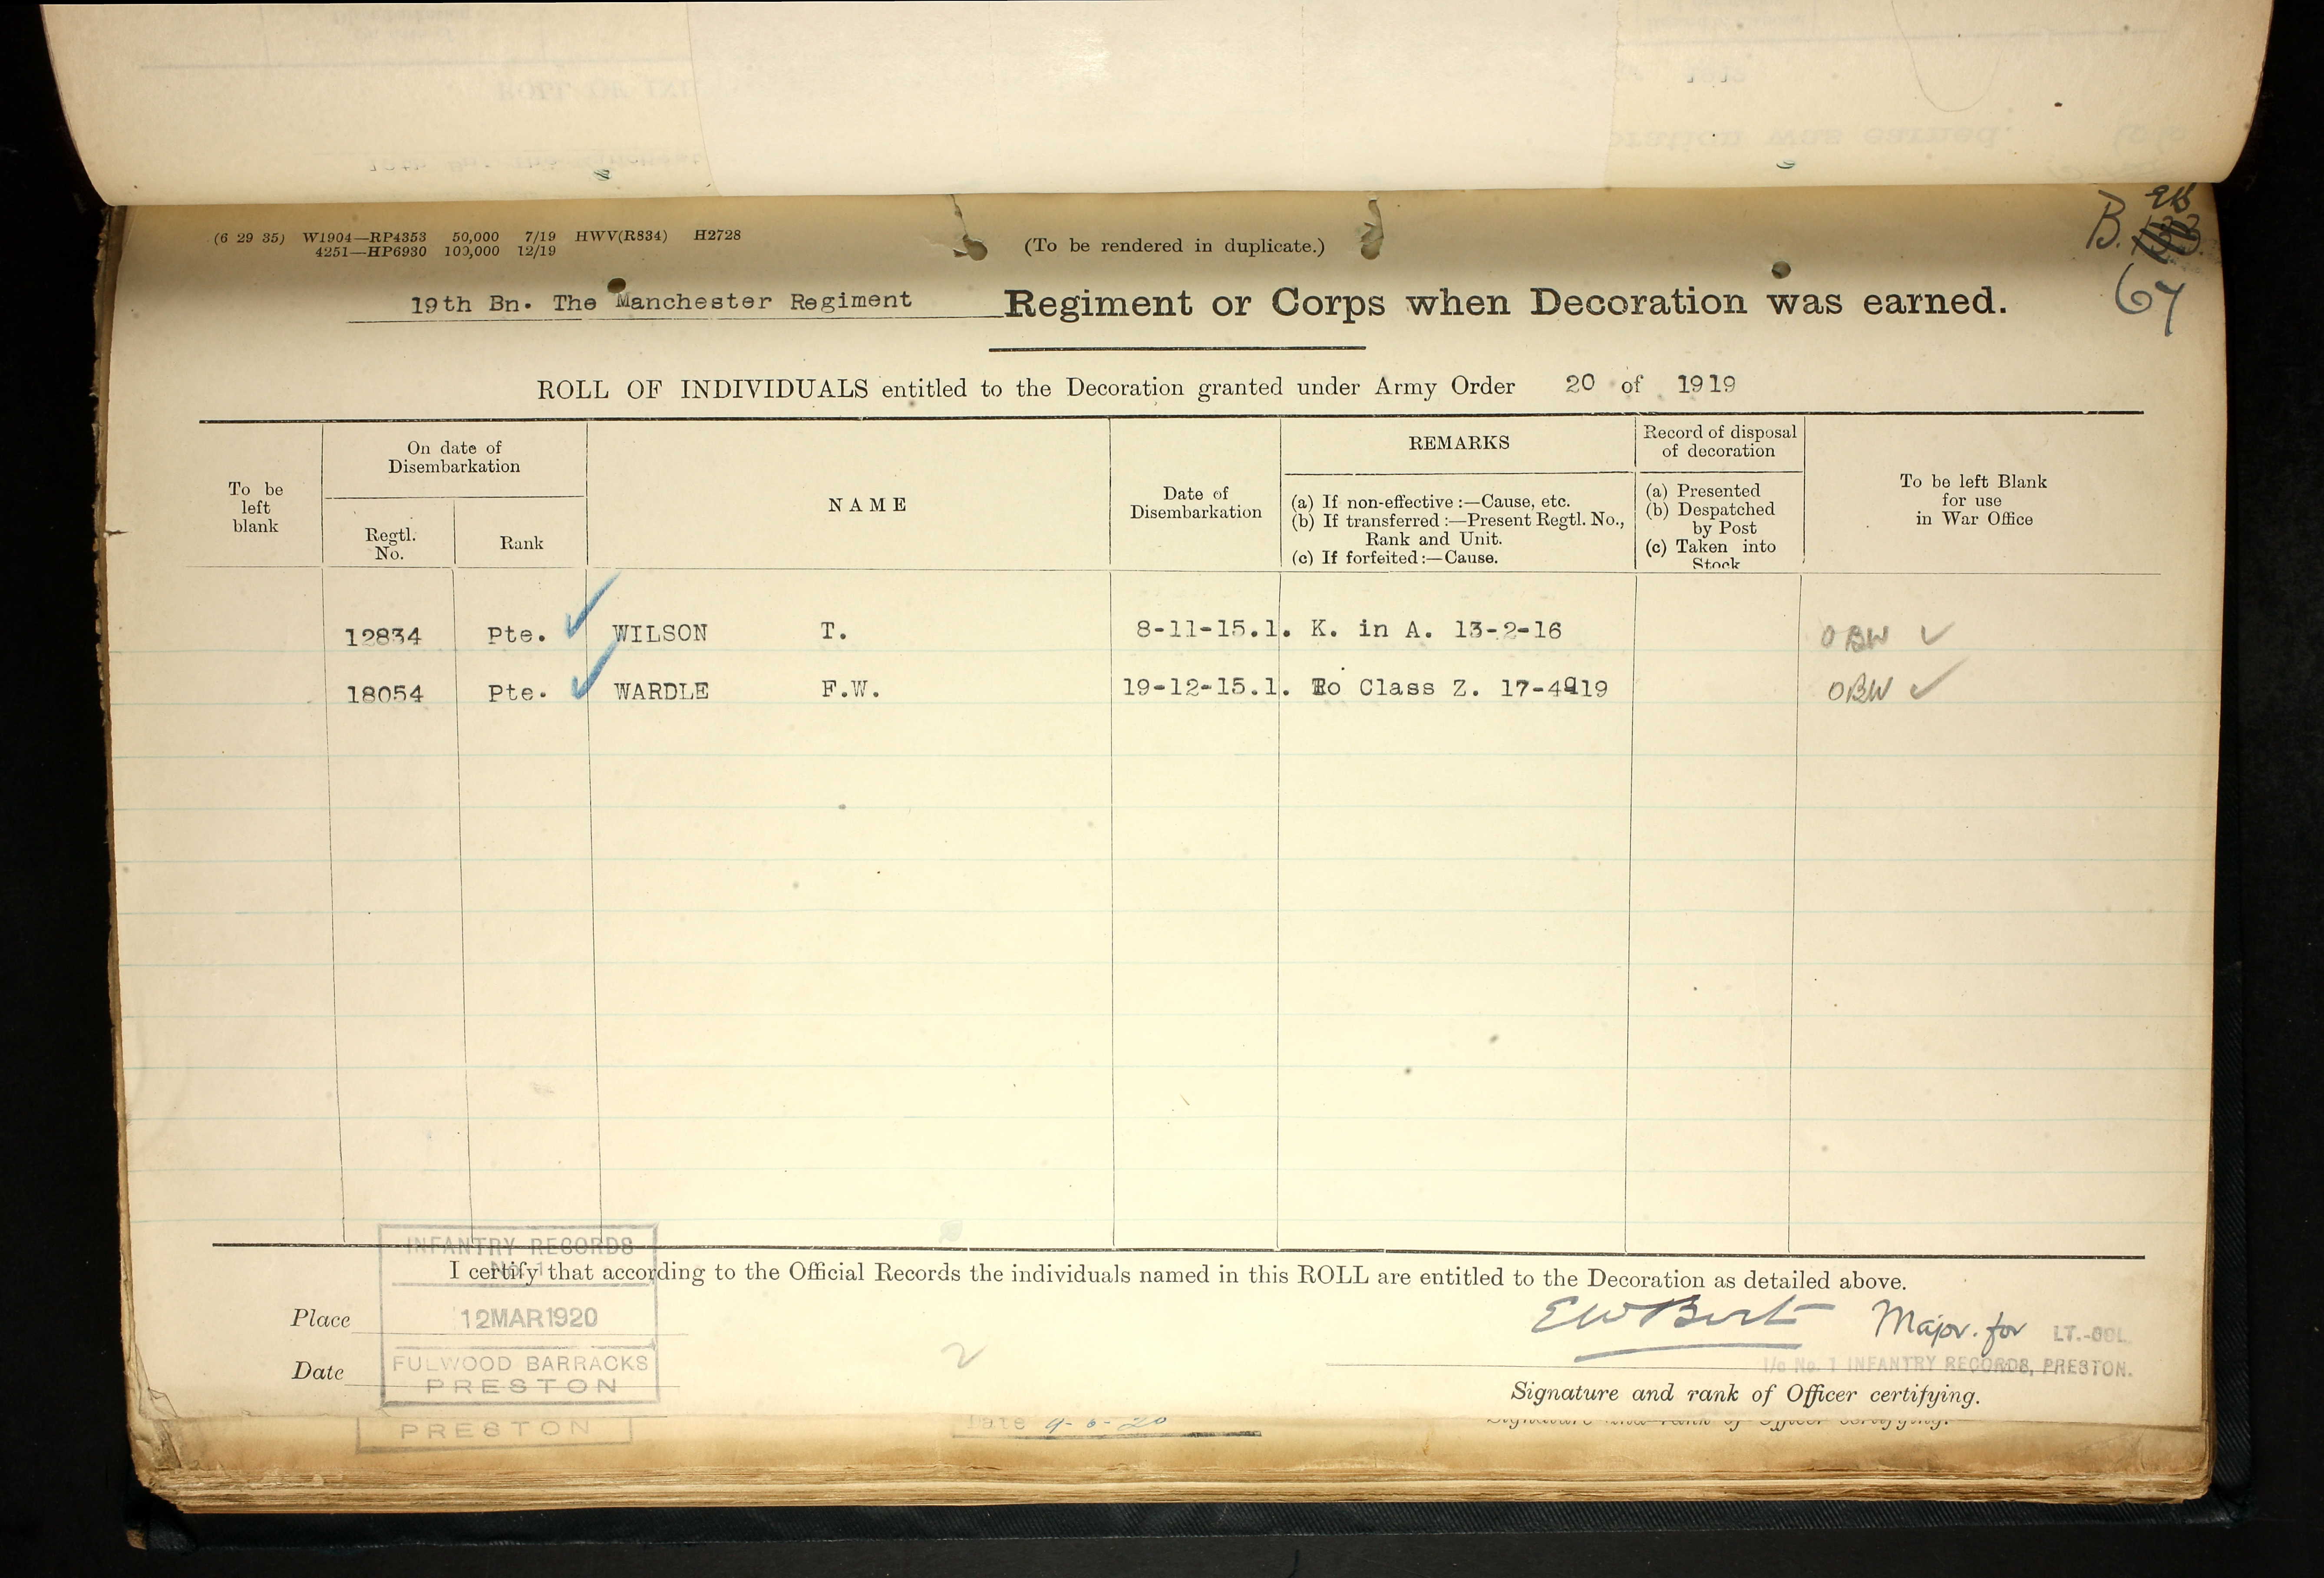 (6 29 35) W1904—RP4353 50,000 7/19 HWV(R834) H2728
4251—HP6930 100,000 12/19
(To be rendered in duplicate.)
B.
67
19th Bn. The Manchester Regiment Regiment or Corps when Decoration was earned.
ROLL OF INDIVIDUALS entitled to the Decoration granted under Army Order 20 of 1919
To be
left
blank
On date of
Disembarkation
Regtl.
No.
Rank
NAME
Date of
Disembarkation
REMARKS
(a) If non-effective :—Cause, etc.
(b) If transferred :—Present Regtl. No.,
Rank and Unit.
(c) If forfeited :—Cause.
Record of disposal
of decoration
(a) Presented
(b) Despatched
by Post
(c) Taken into
Stock
To be left Blank
for use
in War Office
12834 Pte. WILSON T. 8-11-15.1. K. in A. 13-2-16 OBW ✓
18054 Pte. WARDLE F.W. 19-12-15.1. To Class Z. 17-4-19 OBW ✓
I certify that according to the Official Records the individuals named in this ROLL are entitled to the Decoration as detailed above.
INFANTRY RECORDS
No. 1
12 MAR 1920
FULWOOD BARRACKS
PRESTON
Place
Date
2
Major. for LT.-COL.
I/c No. 1 INFANTRY RECORDS, PRESTON.
Signature and rank of Officer certifying.
PRESTON
Date 9-6-20
Signature and rank of Officer certifying.